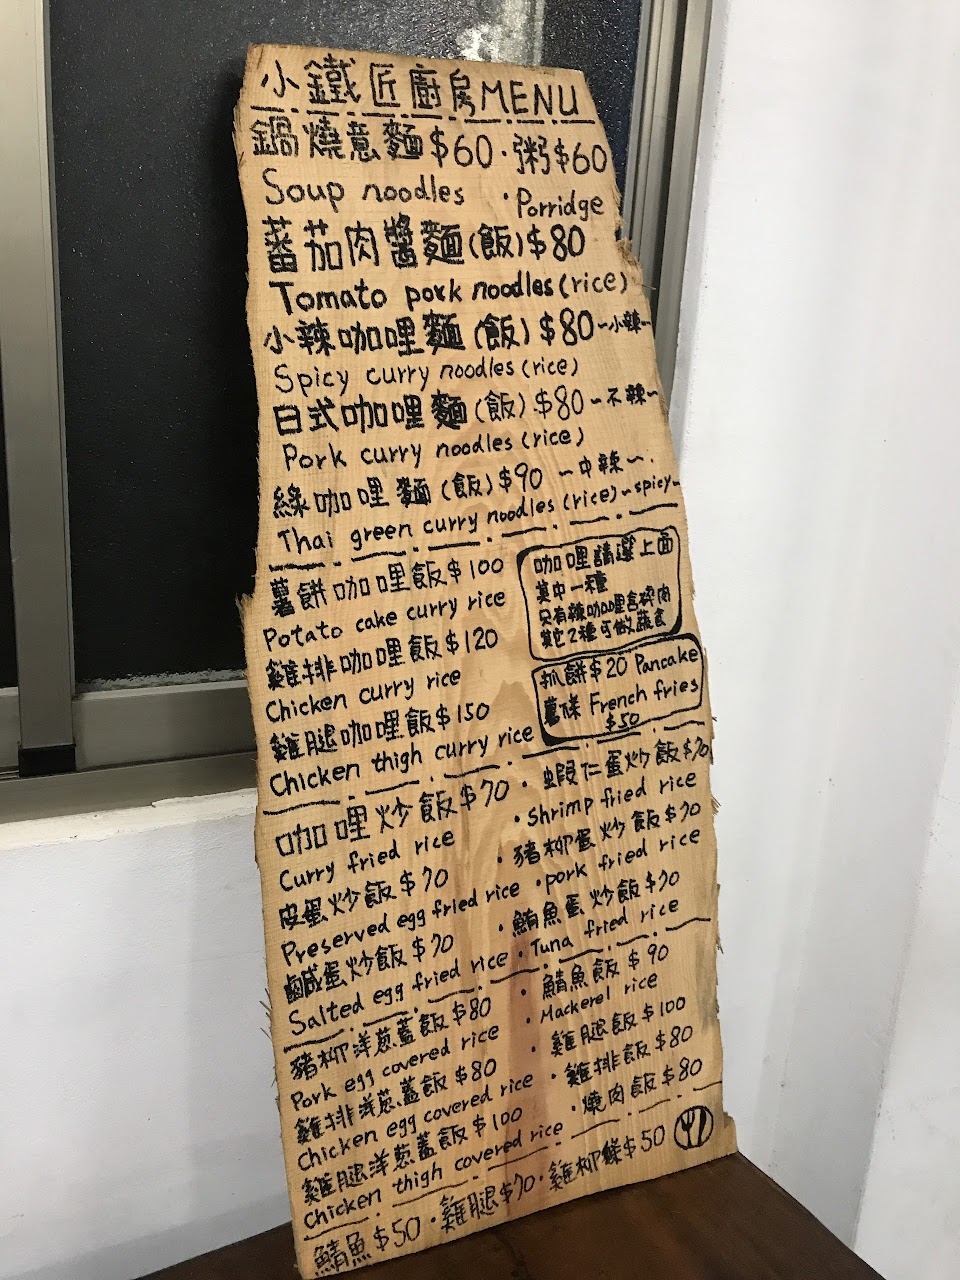 小鐵匠廚房MENU
鍋燒意麵$60·粥$60
Soup noodles ·Porridge
蕃茄肉醬麵(飯)$80
Tomato pork noodles(rice)
小辣咖哩麵(飯)$80~小辣~
Spicy curry noodles(rice)
日式咖哩麵(飯)$80~不辣~
Pork curry noodles(rice)
綠咖哩麵(飯)$90~中辣~
Thai green curry noodles(rice)~spicy~
薯餅咖哩飯$100
Potato cake curry rice
雞排咖哩飯$120
Chicken curry rice
雞腿咖哩飯$150
Chicken thigh curry rice
咖哩請選上面
其中一種
只有辣咖哩含碎肉
其它2種可做蔬食
抓餅$20 Pancake
薯條 French fries
$50
咖哩炒飯$70·蝦仁蛋炒飯$70
Curry fried rice ·Shrimp fried rice
皮蛋炒飯$70·豬柳蛋炒飯$70
Preserved egg fried rice ·pork fried rice
鹹蛋炒飯$70·鮪魚蛋炒飯$70
Salted egg fried rice·Tuna fried rice
豬柳洋蔥蓋飯$80·鯖魚飯$90
Pork egg covered rice ·Mackerel rice
雞排洋蔥蓋飯$80·雞腿飯$100
Chicken egg covered rice·雞排飯$80
雞腿洋蔥蓋飯$100·燒肉飯$80
Chicken thigh covered rice
鯖魚$50·雞腿$70·雞柳條$50